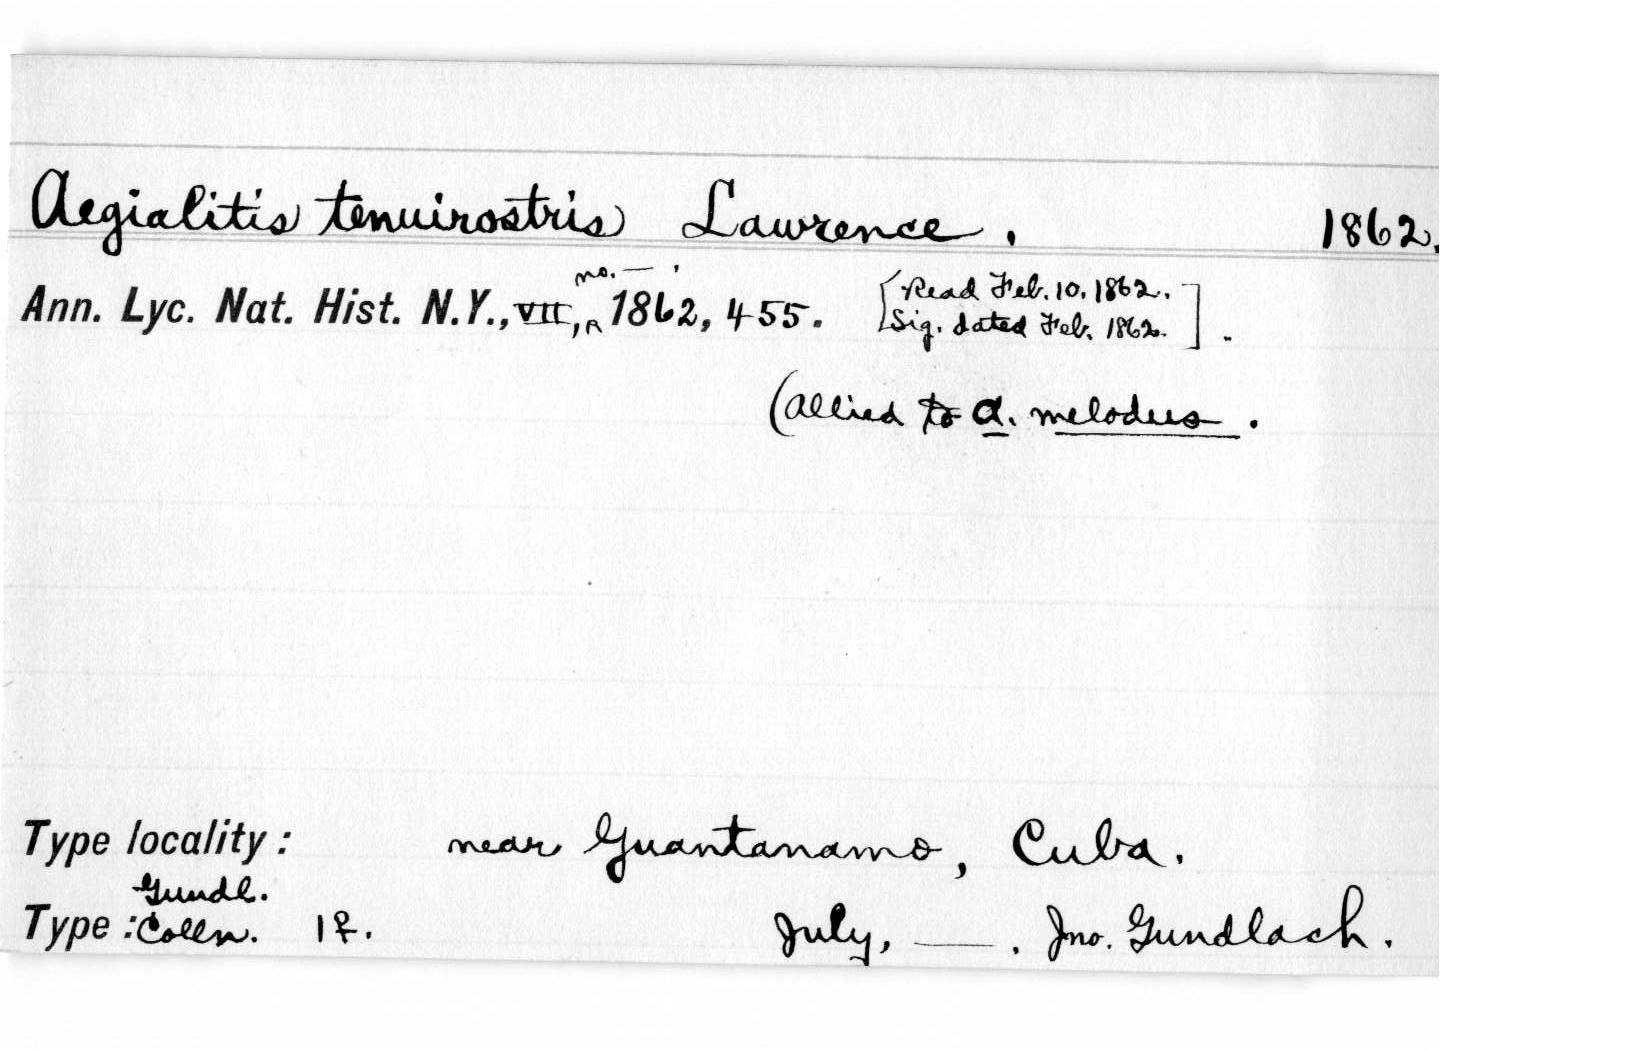 Aegialitis tenuirostris Lawrence. 1862.
no. — ,
Ann. Lyc. Nat. Hist. N.Y., VII, 1862, 455. [Read Feb. 10, 1862.
Sig. dated Feb. 1862.].
(Allied to A. melodus.
Type locality: near Guantanamo, Cuba.
Gundl.
Type: Colln. 1♀. July, ——. Jno. Gundlach.